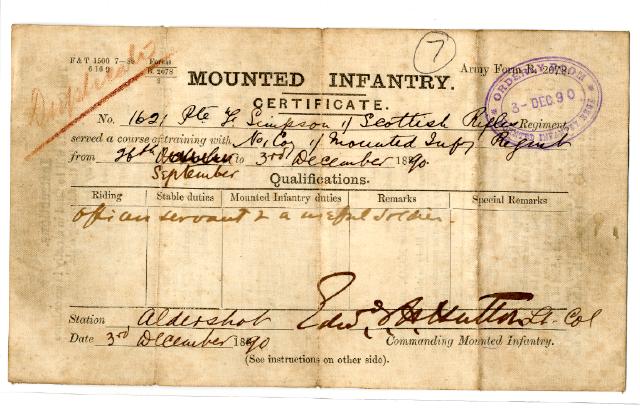 7
F & T 1500 7-89 Forms
6169 B. 2078
Army Form B. 2078.
Duplicate
MOUNTED INFANTRY.
CERTIFICATE.
ORDERLY ROOM
3-DEC.90
No. 1621 Pte H. Simpson of Scottish Rifles Regiment,
served a course of training with No. 1 Coy of Mounted Infy Regimt
from 26th September to 3rd December 1890.
Qualifications.
Riding Stable duties Mounted Infantry duties Remarks Special Remarks
Officers servant & a useful soldier.
Station Aldershot Edwd T. H. Hutton Lt. Col
Date 3rd December 1890 Commanding Mounted Infantry.
(See instructions on other side).